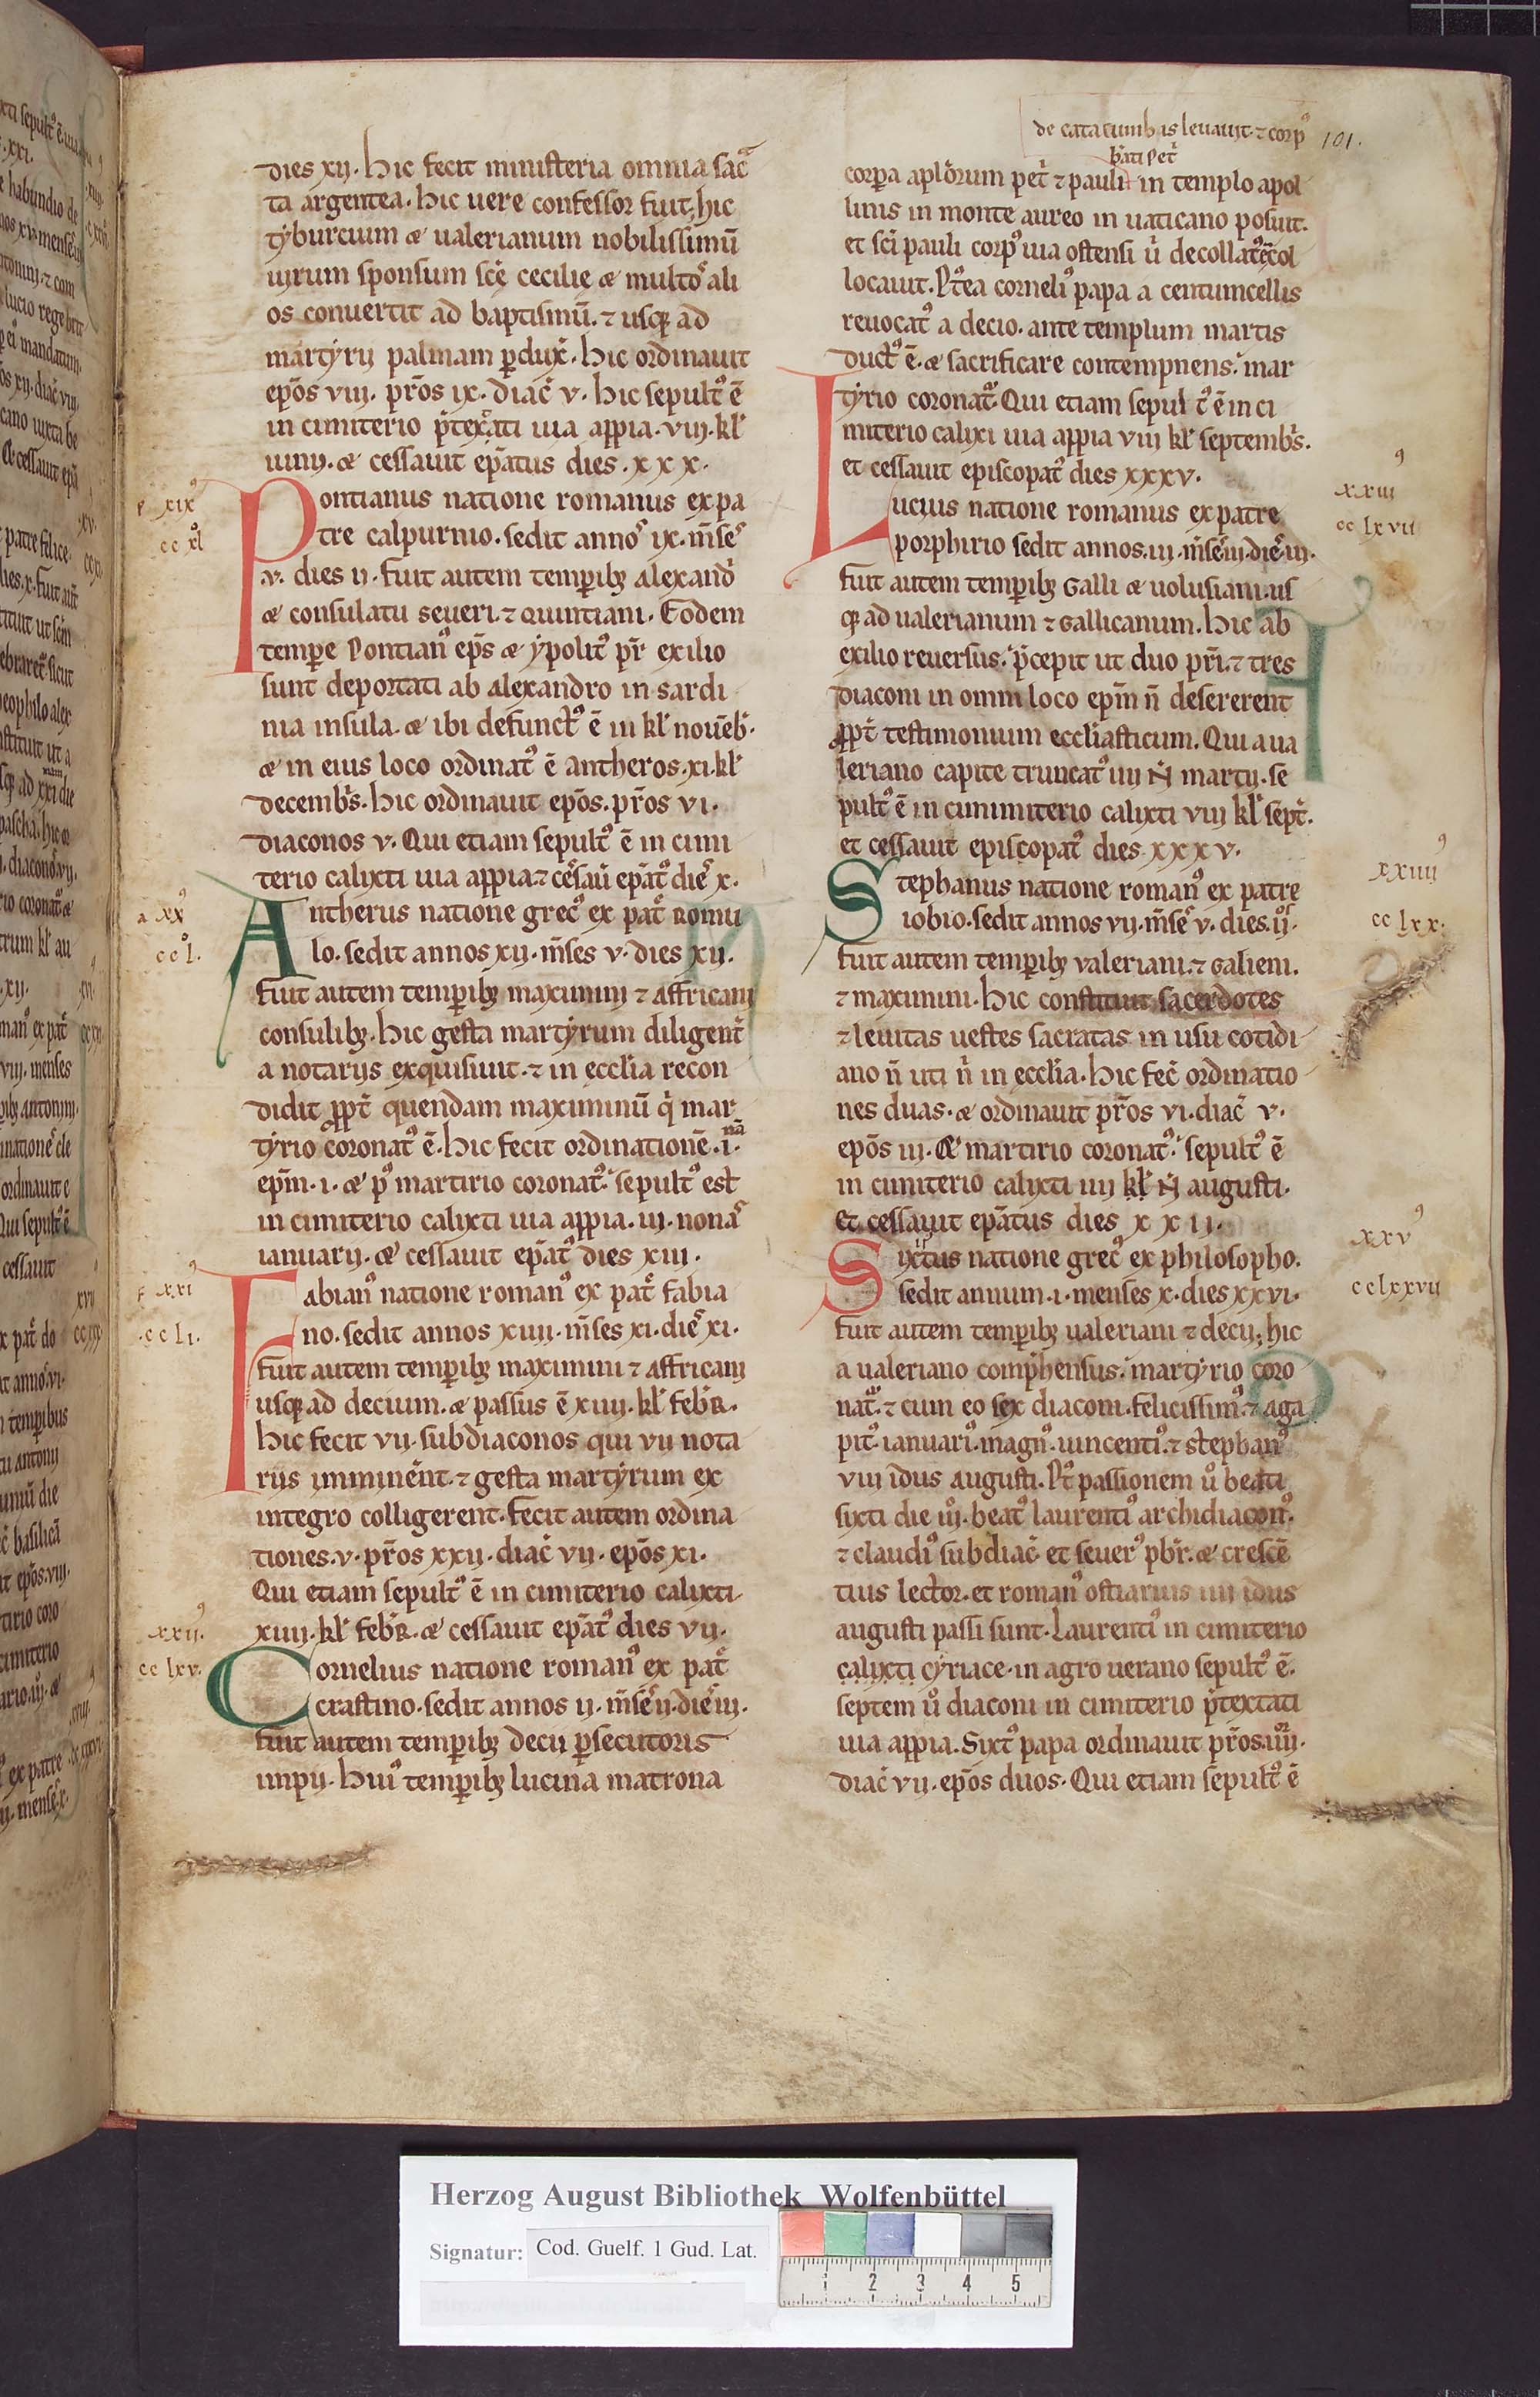 de catacumbis leuauit ⁊ corpꝰ 101.
dies xii. hic fecit ministeria omnia sac̄
ta argentea. hic uere confessor fuit. hic
tyburcium æ ualerianum nobilissimū
uirum sponsum scē cecilie æ multoˢ ali
os conuertit ad baptismū. ⁊ usqꝫ ad
martyrii palmam ꝑduxͭ. hic ordinauit
ep̄os viii. pr̄os ix. diac̄ v. hic sepultꝰ ē
in cimiterio p̄texͭati uia appia. viii. kl̄
iunii. æ cessauit ep̄atus dies. x x x.
P xixꝰ
cc xl
Pontianus natione romanus ex pa
tre calpurnio. sedit annoˢ ix. m̄seˢ
.v. dies ii. fuit autem temꝑibꝫ alexand̄
æ consulatu seueri. ⁊ quintiani. Eodem
temꝑe Pontianꝰ ep̄s æ ypolitꝰ pr̄ exilio
sunt deportati ab alexandro in sardi
nia insula. æ ibi defunctꝰ ē iii kl̄ nouēb̄.
æ in eius loco ordinatꝰ ē antheros. xi. kl̄
decemb̄s. hic ordinauit ep̄os. pr̄os vi.
diaconos v. Qui etiam sepultꝰ ē in cimi
terio calixti uia appia. ⁊ ceˢsau̅ ep̄atꝰ dieˢ x.
a xxꝰ
cc l.
Antherus natione grecꝰ ex patͬ Romu
lo. sedit annos xii. m̄ses v. dies xii.
fuit autem temꝑibꝫ maximini ⁊ affricani
consulibꝫ. hic gesta martyrum diligent̄
a notariis exquisiuit. ⁊ in eccl̄ia recon
didit ꝓpt̄ quendam maximinū qͥ mar
tyrio coronatꝰ ē. hic fecit ordinationē. i.ⁿᵃ̄
ep̄m. i. æ pꝰ martirio coronatꝰ. sepultꝰ est
in cimiterio calixti uia appia. iii. nonaˢ
ianuarii. æ cessauit ep̄atꝰ dies xiii.
F xxiꝰ
.cc li.
Fabianꝰ natione romanꝰ ex patͬ fabia
no. sedit annos xiiii. m̄ses xi. dieˢ xi.
fuit autem temꝑibꝫ maximini ⁊ affricani
usqꝫ ad decium. æ passus ē xiiii. kl̄ feb̄R.
hic fecit vii. subdiaconos qui vii nota
riis imminēnt. ⁊ gesta martyrum ex
integro colligerent. fecit autem ordina
tiones. v. pr̄os xxii. diac̄ vii. ep̄os xi.
Qui etiam sepultꝰ ē in cimiterio calixti
xiiii. kl̄ feb̄R. æ cessauit ep̄atꝰ dies vii.
xxii.ꝰ
cc lxv.
Cornelius natione romanꝰ ex patͬ
crastino. sedit annos ii. m̄seˢ ii. dieˢ iii.
fuit autem temꝑibꝫ decii ꝑsecutoris
impii. huiꝰ temꝑibꝫ lucina matrona
b̄ati Pet̄
corꝑa apl̄orum pet̄ ⁊ pauli in templo apol
linis in monte aureo in uaticano posuit.
et sc̄i pauli corpꝰ uia ostensi u̇ decollatꝰ ē col
locauit. Pꝰtea corneliꝰ papa a centumcellis
reuocatꝰ a decio. ante templum martis
ductꝰ ē. æ sacrificare contempnens. mar
tyrio coronatͬ. Qui etiam sepultꝰ ē in ci
miterio calixti uia appia viii kl̄ septemb̄s.
et cessauit episcopatꝰ dies xxxv.
xxiiiꝰ
cc lxvii
Lucius natione romanus ex patre
porphirio sedit annos. iii. m̄seˢ iii. dieˢ iii.
fuit autem temꝑibꝫ Galli æ uolusiani. us
qꝫ ad ualerianum ⁊ Gallicanum. hic ab
exilio reuersus. p̄cepit ut duo pr̄i. ⁊ tres
diaconi in omni loco ep̄m n̄ desererent
ꝓpt̄ testimonium eccl̄iasticum. Qui a ua
leriano capite truncatꝰ iiii N̄ martii. se
pultꝰ ē in cimmiterio calixti viii kl̄ sept̄.
et cessauit episcopatꝰ dies xxxv.
xxiiiiꝰ
cc lxx.
Stephanus natione romanꝰ ex patre
iobio. sedit annos vii. m̄seˢ v. dies. iiͦ.
fuit autem temꝑibꝫ valeriani. ⁊ Galieni.
⁊ maximini. hic constituit sacerdotes
⁊ leuitas uestes sacratas in usu cotidi
ano n̄ uti n̄ in eccl̄ia. hic fec̄ ordinatio
nes duas. æ ordinauit pr̄os vi. diac̄ v.
ep̄os iii. Æ martirio coronatꝰ. sepultꝰ ē
in cimiterio calyxti iiii kl̄ N̄ augusti.
Et cessauit ep̄atus dies x x ii.
xxvꝰ
cclxxvii
Sixtus natione grecꝰ ex philosopho.
sedit annum. i. menses x. dies xxvi.
fuit autem temꝑibꝫ ualeriani ⁊ decii. hic
a ualeriano comp̄hensus. martyrio coro
natͬ. ⁊ cum eo sex diaconi. felicissimꝰ. ⁊ aga
pitꝰ. ianuariꝰ. magnꝰ. uincentiꝰ. ⁊ stephanꝰ
viii idus augusti. Pt̄ passionem u̇ beati
sixti die iiiͦ. beatꝰ laurentiꝰ archidiaconꝰ.
⁊ claudiꝰ subdiac̄ et seuerꝰ pb̄r. æ crescē
tius lector. et romanꝰ ostiarius iiii idus
augusti passi sunt. Laurentiꝰ in cimiterio
calixti cyriace. in agro uerano sepultꝰ ē.
septem u̇ diaconi in cimiterio p̄textati
uia appia. Sixtꝰ papa ordinauit pr̄os. iiii.
diac̄ vii. ep̄os duos. Qui etiam sepultꝰ ē
Herzog August Bibliothek Wolfenbüttel
Signatur: Cod. Guelf. 1 Gud. Lat.
1 2 3 4 5